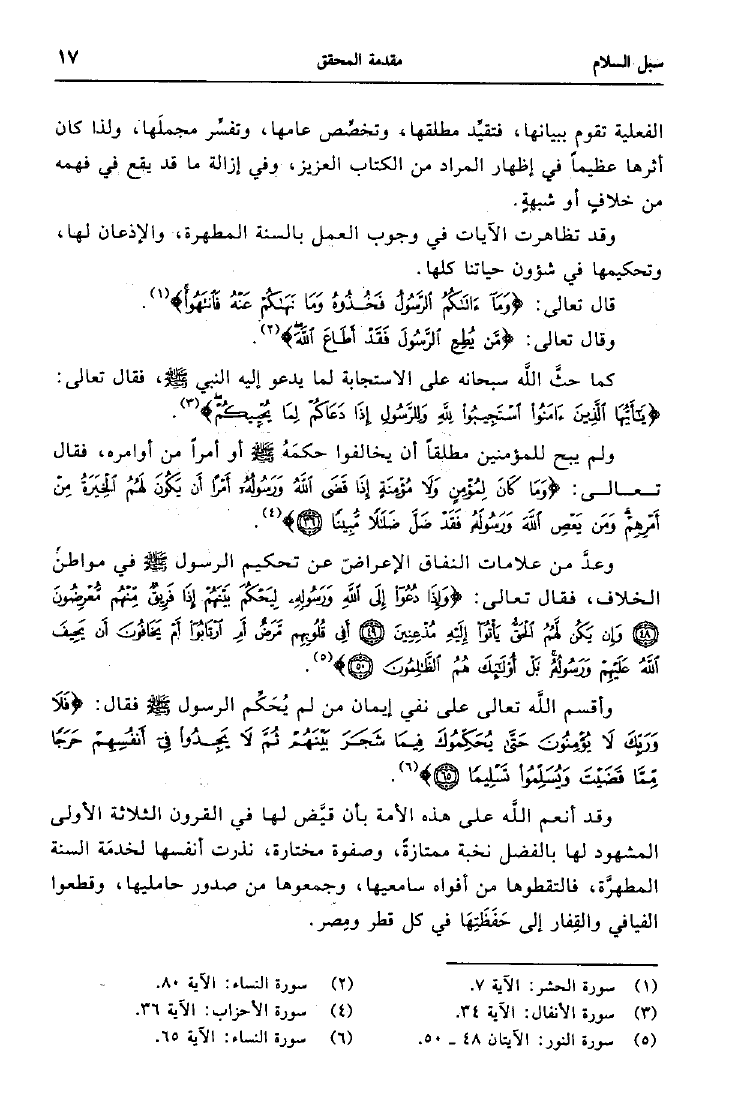 سبل السلام
مقدمة المحقق
١٧
الفعلية تقوم ببيانها، فتقيِّد مطلقها، وتخصِّص عامها، وتفسِّر مجملَها، ولذا كان
أثرها عظيماً في إظهار المراد من الكتاب العزيز، وفي إزالة ما قد يقع في فهمه
من خلافٍ أو شبهةٍ.
وقد تظاهرت الآيات في وجوب العمل بالسنة المطهرة، والإذعان لها،
وتحكيمها في شؤون حياتنا كلها.
قال تعالى: ﴿وَمَآ ءَاتَىٰكُمُ ٱلرَّسُولُ فَخُذُوهُ وَمَا نَهَىٰكُمْ عَنْهُ فَٱنتَهُواْ﴾(١).
وقال تعالى: ﴿مَّن يُطِعِ ٱلرَّسُولَ فَقَدْ أَطَاعَ ٱللَّهَ﴾(٢).
كما حثَّ اللَّه سبحانه على الاستجابة لما يدعو إليه النبي ﷺ، فقال تعالى:
﴿يَٰٓأَيُّهَا ٱلَّذِينَ ءَامَنُواْ ٱسْتَجِيبُواْ لِلَّهِ وَلِلرَّسُولِ إِذَا دَعَاكُمْ لِمَا يُحْيِيكُمْ﴾(٣).
ولم يبح للمؤمنين مطلقاً أن يخالفوا حكمَهُ ﷺ أو أمراً من أوامره، فقال
تعـالـى: ﴿وَمَا كَانَ لِمُؤْمِنٍ وَلَا مُؤْمِنَةٍ إِذَا قَضَى ٱللَّهُ وَرَسُولُهُۥٓ أَمْرًا أَن يَكُونَ لَهُمُ ٱلْخِيَرَةُ مِنْ
أَمْرِهِمْ وَمَن يَعْصِ ٱللَّهَ وَرَسُولَهُۥ فَقَدْ ضَلَّ ضَلَٰلًا مُّبِينًا ٣٦﴾(٤).
وعدَّ من علامات النفاق الإعراضَ عن تحكيم الرسول ﷺ في مواطن
الخلاف، فقال تعالى: ﴿وَإِذَا دُعُوٓاْ إِلَى ٱللَّهِ وَرَسُولِهِۦ لِيَحْكُمَ بَيْنَهُمْ إِذَا فَرِيقٌ مِّنْهُم مُّعْرِضُونَ
٤٨ وَإِن يَكُن لَّهُمُ ٱلْحَقُّ يَأْتُوٓاْ إِلَيْهِ مُذْعِنِينَ ٤٩ أَفِى قُلُوبِهِم مَّرَضٌ أَمِ ٱرْتَابُوٓاْ أَمْ يَخَافُونَ أَن يَحِيفَ
ٱللَّهُ عَلَيْهِمْ وَرَسُولُهُۥ بَلْ أُوْلَٰٓئِكَ هُمُ ٱلظَّٰلِمُونَ ٥٠﴾(٥).
وأقسم اللَّه تعالى على نفي إيمان من لم يُحَكِّم الرسول ﷺ فقال: ﴿فَلَا
وَرَبِّكَ لَا يُؤْمِنُونَ حَتَّىٰ يُحَكِّمُوكَ فِيمَا شَجَرَ بَيْنَهُمْ ثُمَّ لَا يَجِدُواْ فِىٓ أَنفُسِهِمْ حَرَجًا
مِّمَّا قَضَيْتَ وَيُسَلِّمُواْ تَسْلِيمًا ٦٥﴾(٦).
وقد أنعم اللَّه على هذه الأمة بأن قيَّض لها في القرون الثلاثة الأولى
المشهود لها بالفضل نخبة ممتازةً، وصفوة مختارة، نذرت أنفسها لخدمَة السنة
المطهرَّة، فالتقطوها من أفواه سامعيها، وجمعوها من صدور حامليها، وقطعوا
الفيافي والقِفار إلى حَفَظَتِهَا في كل قطر ومِصر.
(١) سورة الحشر: الآية ٧.
(٢) سورة النساء: الآية ٨٠.
(٣) سورة الأنفال: الآية ٣٤.
(٤) سورة الأحزاب: الآية ٣٦.
(٥) سورة النور: الآيتان ٤٨ ـ ٥٠.
(٦) سورة النساء: الآية ٦٥.